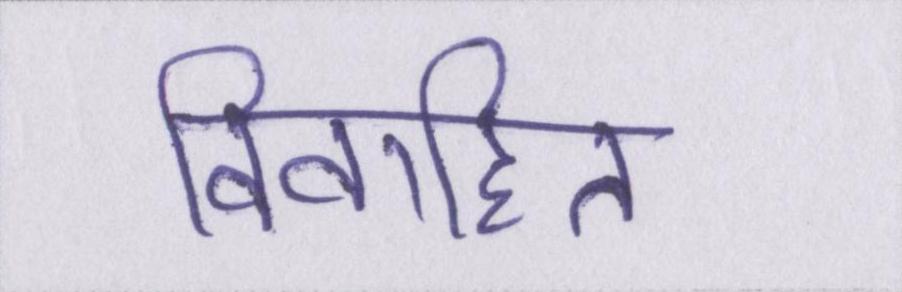 विवाहित